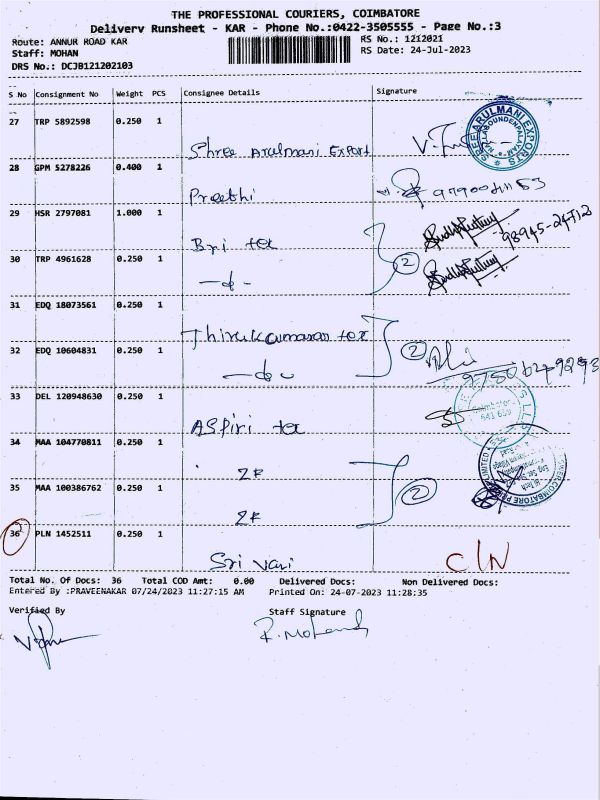 THE PROFESSIONAL COURIERS, COIMBATORE
Delivery Runsheet - KAR - Phone No.:0422-3505555 - Page No.:3
Route: ANNUR ROAD KAR RS No.: 1212021
Staff: MOHAN RS Date: 24-Jul-2023
DRS No.: DCJB121202103
S No Consignment No Weight PCS Consignee Details Signature
27 TRP 5892598 0.250 1
Shree Arulmani Export
SREE ARULMANI EXPORTS
28 GPM 5278226 0.400 1
Preethi
29 HSR 2797081 1.000 1
Bri tex
98945-24712
30 TRP 4961628 0.250 1
-d- 2
31 EDQ 18073561 0.250 1
Thirukumaran tex
32 EDQ 10604831 0.250 1
-do- 2
33 DEL 120948630 0.250 1
ASpiri tex
Coimbatore-
641 659
34 MAA 104770811 0.250 1
ZF
35 MAA 100386762 0.250 1
ZF 2
36 PLN 1452511 0.250 1
Sri Vari C/N
Total No. Of Docs: 36 Total COD Amt: 0.00 Delivered Docs: Non Delivered Docs:
Entered By :PRAVEENAKAR 07/24/2023 11:27:15 AM Printed On: 24-07-2023 11:28:35
Verified By Staff Signature
R. Mohan